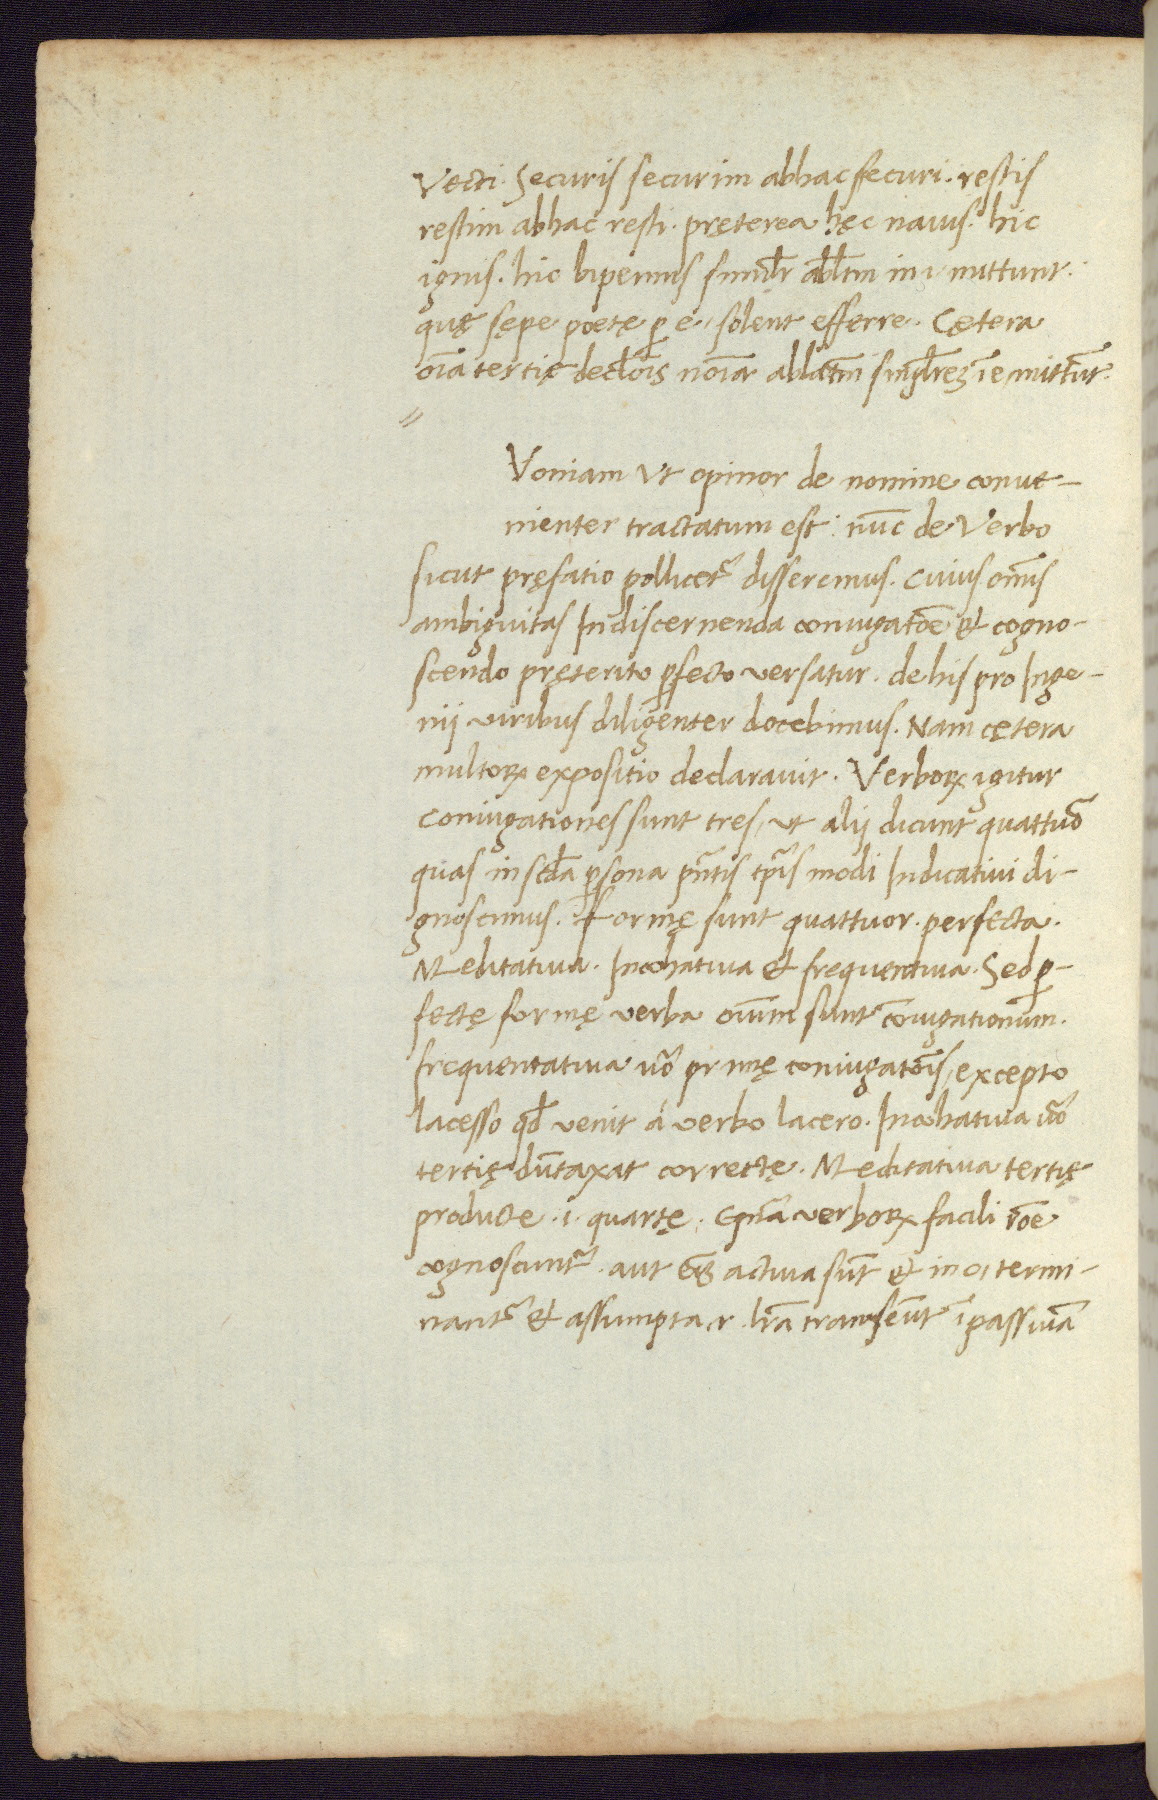 Vecti. Securis securim abhac securi. restis
restim abhac resti. pręterea hęc navis. hic
ignis. hic bipennis simılr̄ abl̄tm in i mittunt.
quę sępe poetę ꝑ e, solent efferre. Cętera
oīa tertię decl̄ois noīa ablatm̄ singl̄rez ī e mittūt.
Voniam ut opinor de nomine conve-
nienter tractatum est: nūc de Verbo
sicut pręfatio pollicet᷑ disseremus. Cuius om̄is
ambiguitas In discernenda coniugatōe & cogno-
scendo pręterito ꝑfecto versatur. de his pro Inge-
nij viribus diligenter docebimus. Nam cętera
multoꝝ expositio declaravit. Verboꝝ igitur
Coniugationes sunt tres, ut alij dicunt quattuō
quas in scd̄a ꝑsona pn̄tis tp̄is modi Indicativi di-
gnoscimus. Formę sunt quattuor. perfecta.
Meditativa. Incohativa & frequentiva. Sed ꝑ-
fectę formę verba oīum sunt cōiugationum.
frequentativa v̄o primę coniugatōis, excepto
lacesso qd̄ venit á verbo lacero. Incohativa v̄o
tertię dūtaxat correctę. Meditativa tertię
producte .i. quartę. Gn̄a verboꝝ facili rōe
cognoscunt᷑. aut em̄ activa sūt & in o, termi-
nant᷑ & assumpta r. lr̄a transeūt ī passivā